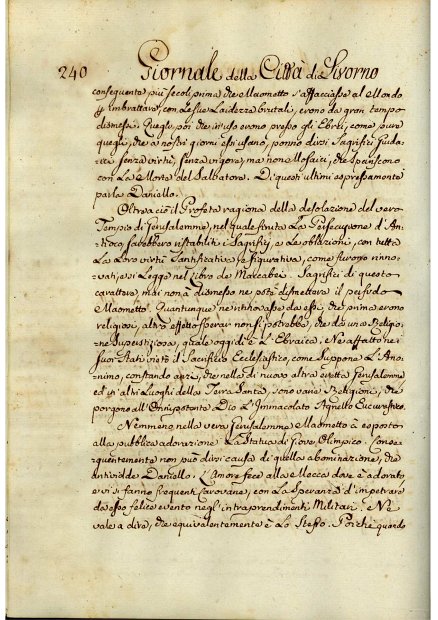 240 Giornale della Città di Livorno
conseguente più secoli prima che Maometto s'affacciasse al Mondo
per imbrattare, con le sue Laidezze brutali, erono da gran tempo
dismessi. Quegli poi che in uso erono presso gli Ebrei, come pure
quegli, che a nostri giorni essi usano, ponno dirsi Sagrifizi Giuda-
ici senza virtù, senza vigore, ma non Mosaici, che spirarono
con La Morte del Salvatore. Di questi ultimi espressamente
parla Daniello.
Oltre a ciò il Profeta ragiona della desolazione del vero
Tempio di Gerusalemme, nel quale finita La Persecuzione d'An-
tioco, sarebbero ristabiliti i Sagrifizj, e Le oblazioni, con tutta
La Loro virtù santificativa, e figurativa, come furono rinno-
vati, e si Legge nel Libro de Maccabei. Sagrifizi di questo
carattere, mai non à dismesso ne potea dismettere il pseudo
Maometto. Quantunque ne ritrovasse da essi, che prima erono
religiosi, altro effetto sperar non si potrebbe, che da una Religio-
ne Superstiziosa, quale oggi dì è L'Ebraica. Ne affatto ne'
suoi Stati vietò il Sacrifizio Ecclesiastico, come suppone L'Ano-
nimo, constando a più, che nella di nuovo altra eretta Gerusalemme
ed in altri Luoghi della Terra Santa, sono varie Religioni, che
porgono all'Onnipotente Dio L'Immacolato Agnello Eucaristico.
Nemmeno nella vera Gerusalemme Maometto à esposto
alla pubblica adorazione La Statua di Giove Olimpico. Conse-
quentemente non può dirsi causa di quella abominazione, che
antividde Daniello. L'Amore fece alla Mecca dove è adorato,
e vi si fanno frequenti Carovane, con La Speranza d'impetrare
da esso felice evento negl'intraprendimenti Militari. Ne
vale a dire, che equivalentemente è Lo Stesso. Poiché quando